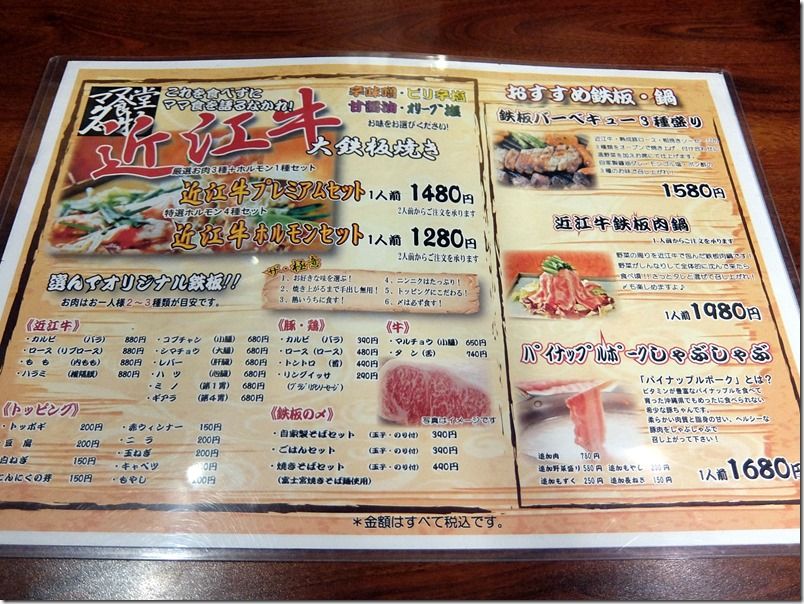 ママ食堂
これを食べずに
ママ食を語るなかれ!
辛味噌・ピリ辛塩
甘醤油・オリーブ塩
お味をお選びください!
近江牛
大鉄板焼き
厳選お肉3種+ホルモン1種セット
近江牛プレミアムセット 1人前 1480円
2人前からご注文を承ります
特選ホルモン4種セット
近江牛ホルモンセット 1人前 1280円
2人前からご注文を承ります
選んでオリジナル鉄板!!
お肉はお一人様2〜3種類が目安です。
ザ・極意
1. お好きな味を選ぶ!
2. 焼き上がるまで手出し無用!
3. 熱いうちに食す!
4. ニンニクはたっぷり!
5. トッピングにこだわる!
6. 〆は必ず食す!
《近江牛》
・カルビ (バラ) 880円
・ロース (リブロース) 880円
・もも (内もも) 880円
・ハラミ (横隔膜) 880円
・コプチャン (小腸) 680円
・シマチョウ (大腸) 680円
・レバー (肝臓) 680円
・ハツ (心臓) 680円
・ミノ (第1胃) 680円
・ギアラ (第4胃) 680円
《豚・鶏》
・カルビ (バラ) 390円
・ロース (ロース) 480円
・トントロ (首) 490円
・リングイッサ 390円
(ブラジリソーセージ)
《牛》
・マルチョウ (小腸) 650円
・タン (舌) 740円
写真はイメージです
《トッピング》
・トッポギ 200円
・豆腐 200円
白ねぎ 150円
にんにくの芽 150円
・赤ウィンナー 150円
・ニラ 200円
・玉ねぎ 200円
・キャベツ 200円
・もやし 200円
《鉄板の〆》
・自家製そばセット (玉子・のり付) 390円
・ごはんセット (玉子・のり付) 390円
・焼きそばセット (玉子・のり付) 490円
(富士宮焼きそば麺使用)
おすすめ鉄板・鍋
鉄板バーベキュー3種盛り
近江牛・熟成豚ロース・粗挽きソーセージの
3種類をオーブンで焼き上げ、付け合わせに
温野菜を加えお席にて仕上げます。
3種のお味で召し上がれ!
1580円
近江牛鉄板肉鍋
1人前からご注文を承ります
野菜の周りを近江牛で包んだ鉄板肉鍋です!
野菜がしんなりして全体的に沈んで来たら
食べ頃!!さっとタレと混ぜて召し上がれ!
〆も楽しめますよ♪
1人前1980円
パイナップルポークしゃぶしゃぶ
「パイナップルポーク」とは?
ビタミンが豊富なパイナップルを食べて
育った沖縄県でもめったに食べられない
希少な豚ちゃんです。
柔らかい肉質と脂身の甘い、ヘルシーな
豚肉をしゃぶしゃぶで
召し上がって下さい!
追加肉 780円
追加野菜盛り 580円 追加もやし 200円
追加もずく 250円 追加長ねぎ 150円
1人前 1680円
*金額はすべて税込です。